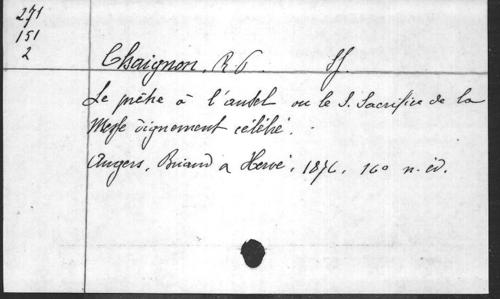 271
151
2
Chaignon, R. P. SJ.
Le prêtre à l'autel ou le S. Sacrifice de la
Messe dignement célébré.
Angers, Briand & Hervé, 1876, 16° n. éd.